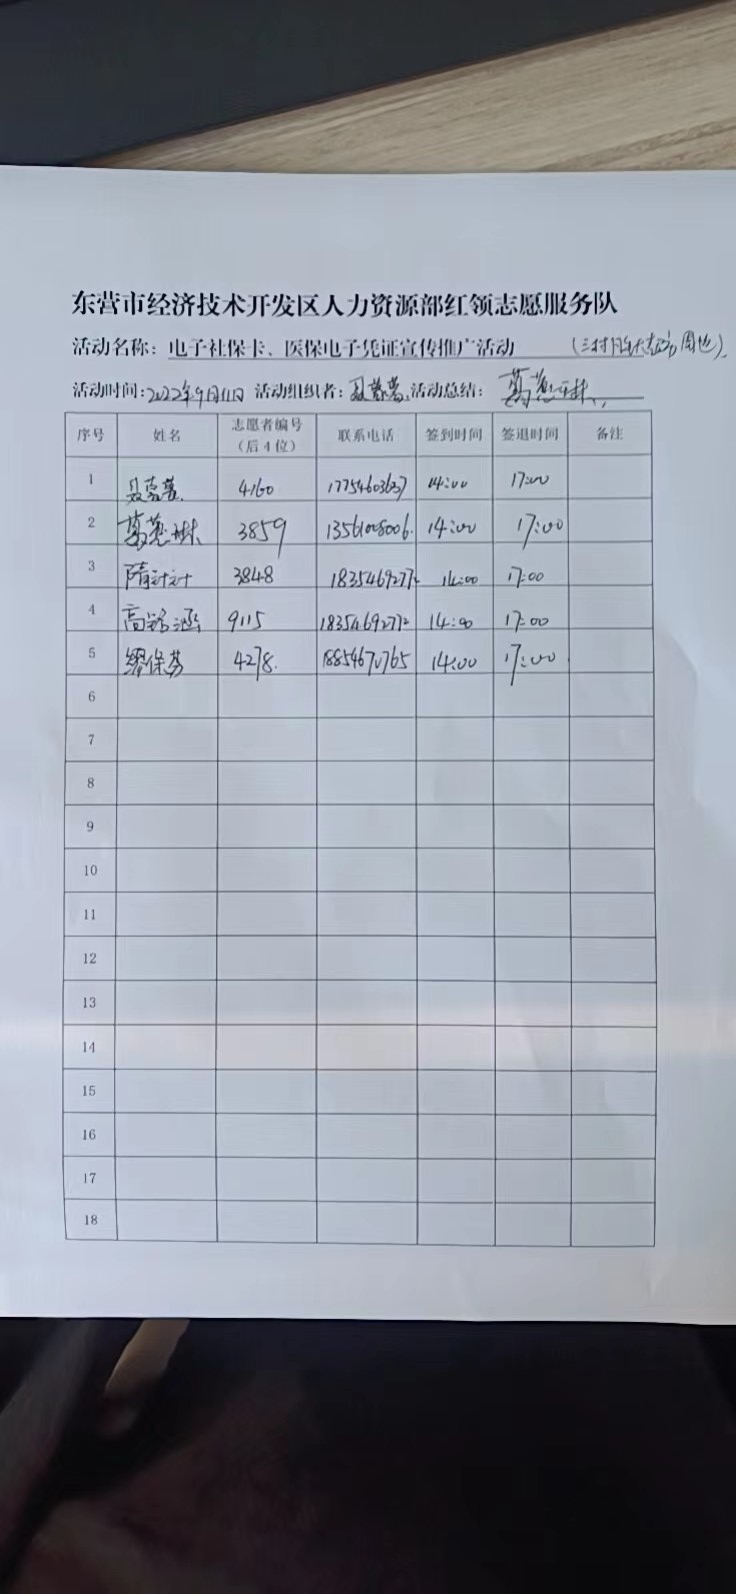 东营市经济技术开发区人力资源部红领志愿服务队
活动名称：电子社保卡、医保电子凭证宣传推广活动
活动时间：2022年9月11日 活动组织者：聂蓉蓉 活动总结：葛慧琳
序号 姓名 志愿者编号（后4位） 联系电话 签到时间 签退时间 备注
1 聂蓉蓉 4160 17754603637 14:00 17:00
2 葛慧琳 3859 14:00 17:00
3 隋计计 3848 18354692772 14:00 17:00
4 高 涵 9115 18354692772 14:00 17:00
5 缪保芬 4278 18854670765 14:00 17:00
6
7
8
9
10
11
12
13
14
15
16
17
18